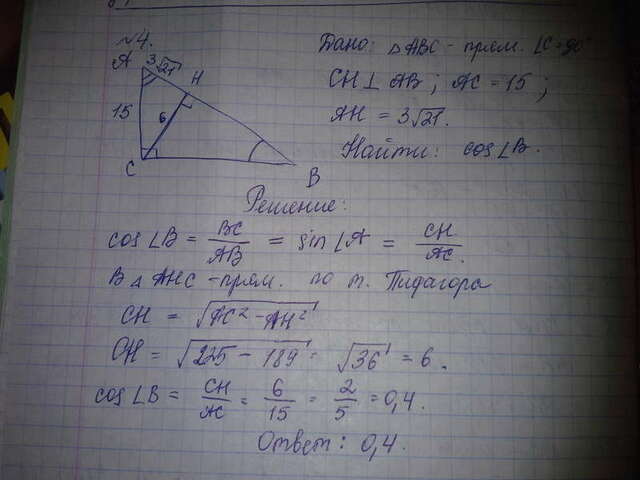 №4.
Дано: △ABC - прям. ∠C = 90°
CH ⊥ AB; AC = 15;
AH = 3√21.
Найти: cos∠B.
A 3√21 H
15 6
C B
Решение:
cos∠B = BC/AB = sin∠A = CH/AC.
В △AHC - прям. по т. Пифагора
CH = √(AC² - AH²)
CH = √(225 - 189) = √36 = 6.
cos∠B = CH/AC = 6/15 = 2/5 = 0,4.
Ответ: 0,4.